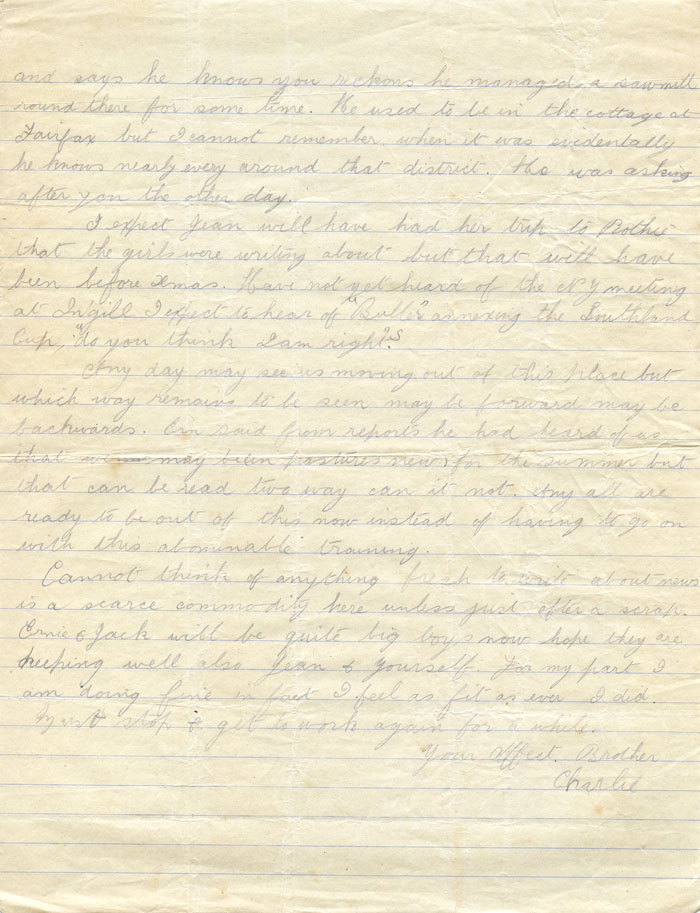 and says he knows you reckons he managed a sawmill
round there for some time. He used to be in the cottage at
Fairfax but I cannot remember when it was evidentally
he knows nearly every around that district. He was asking
after you the other day.
I expect Jean will have had her trip to
that the girls were writing about but that will have
been before Xmas. Have not yet heard of the NZ meeting
at In'gill I expect to hear of "Buller" annexing the Southland
Cup, "do you think I am right?"
Any day may see us moving out of this place but
which way remains to be seen may be forward may be
backwards. Ern said from reports he had heard of us
that may been pastures new for the summer but
that can be read two way can it not. Any all are
ready to be out of this now instead of having to go on
with this abominable training.
Cannot think of anything fresh to write about news
is a scarce commodity here unless just after a scrap.
Ernie & Jack will be quite big boys now hope they are
keeping well also Jean & yourself. For my part I
am doing fine in fact I feel as fit as ever I did.
Must stop & get to work again for a while.
Your Affect. Brother
Charlie